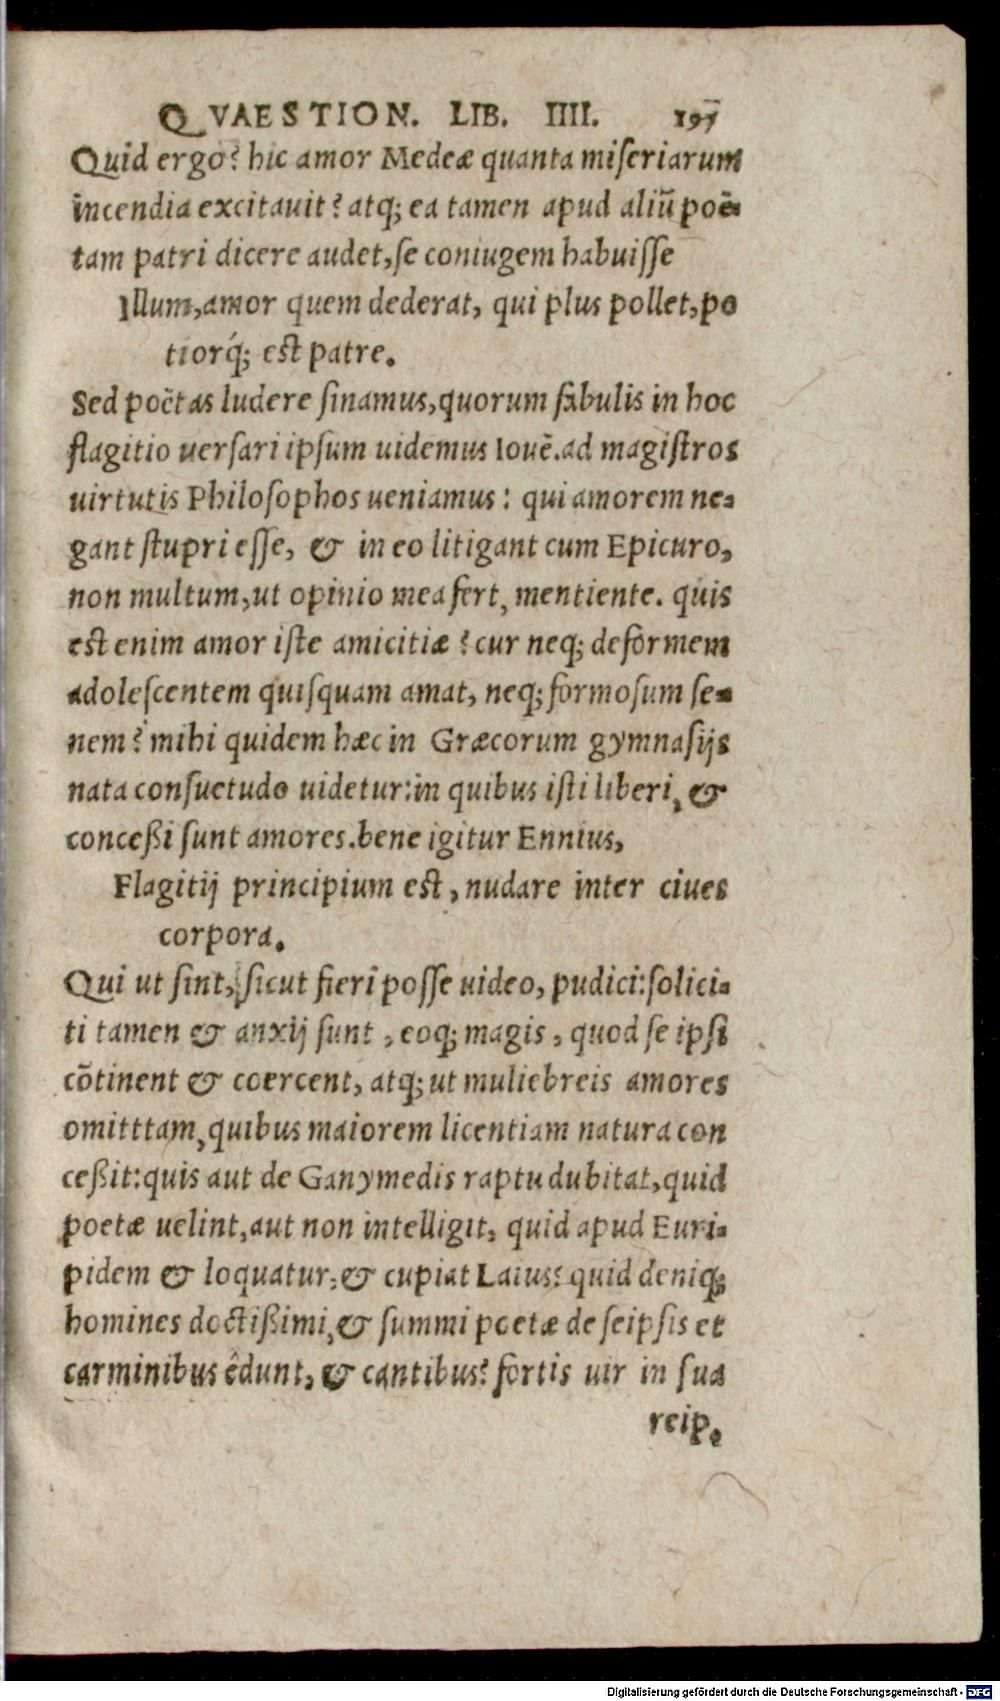 QVAESTION. LIB. IIII. 197
Quid ergo? hic amor Medeæ quanta miſeriarum
incendia excitauit? atq; ea tamen apud aliū poë-
tam patri dicere audet, ſe coniugem habuiſſe
Illum, amor quem dederat, qui plus pollet, po
tiorq́; eſt patre.
Sed poëtas ludere ſinamus, quorum fabulis in hoc
flagitio uerſari ipſum uidemus Iouē. ad magiſtros
uirtutis Philoſophos ueniamus: qui amorem ne-
gant ſtupri eſſe, & in eo litigant cum Epicuro,
non multum, ut opinio mea fert, mentiente. quis
eſt enim amor iſte amicitiæ? cur neq; deformem
adoleſcentem quiſquam amat, neq; formoſum ſe-
nem? mihi quidem hæc in Græcorum gymnaſijs
nata conſuetudo uidetur: in quibus iſti liberi, &
conceßi ſunt amores. bene igitur Ennius,
Flagitij principium eſt, nudare inter ciues
corpora.
Qui ut ſint, ſicut fieri poſſe uideo, pudici: ſolici-
ti tamen & anxij ſunt, eoq; magis, quod ſe ipſi
cōtinent & coercent, atq; ut muliebreis amores
omitttam, quibus maiorem licentiam natura con
ceßit: quis aut de Ganymedis raptu dubitat, quid
poetæ uelint, aut non intelligit, quid apud Euri-
pidem & loquatur, & cupiat Laius? quid deniq;
homines doctißimi, & ſummi poetæ de ſeipſis et
carminibus êdunt, & cantibus? fortis uir in ſua
reip.
Digitalisierung gefördert durch die Deutsche Forschungsgemeinschaft - DFG